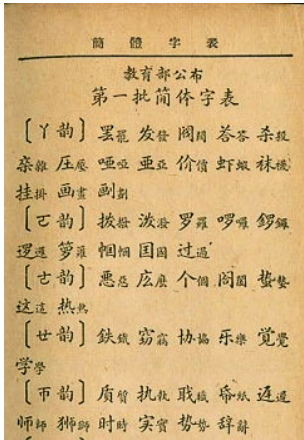 簡體字表
教育部公布
第一批简体字表
〔ㄚ韵〕罢罷 发發 阀閥 荅答 杀殺
杂雜 压壓 哑啞 亚亞 价價 虾蝦 袜襪
挂掛 画畫 劃
〔ㄛ韵〕拨撥 泼潑 罗羅 啰囉 锣鑼
逻邏 箩籮 帼幗 囯國 过過
〔ㄜ韵〕恶惡 庅麼 个個 阁閣 蛰蟄
这這 热熱
〔ㄝ韵〕鉄鐵 窃竊 协協 乐樂 觉覺
学學
〔ㄭ韵〕质質 执執 职職 帋紙 迟遲
师師 狮獅 时時 实實 势勢 辞辭